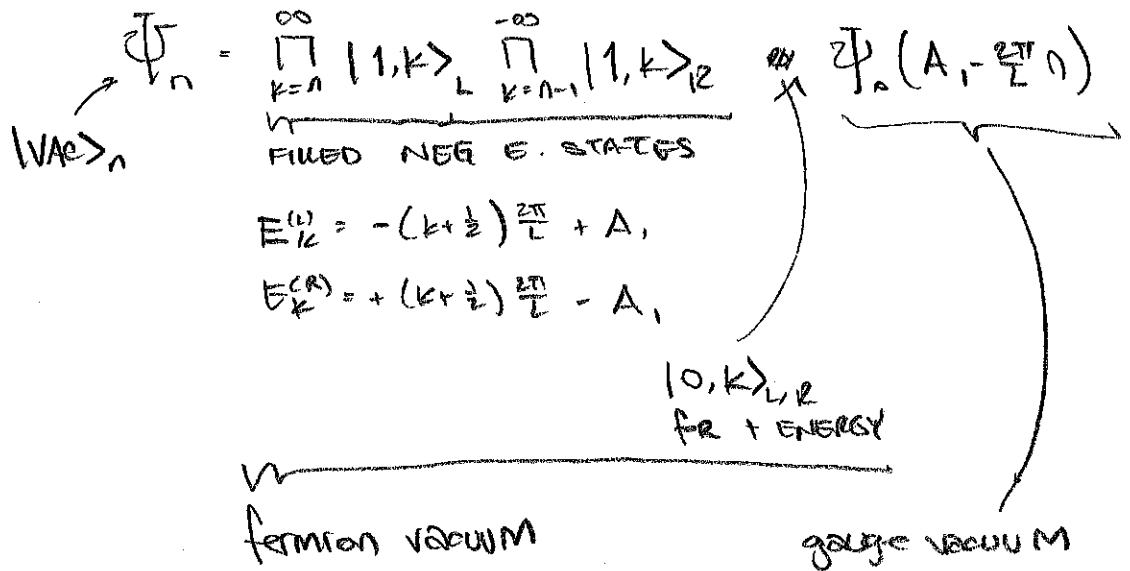 Ψₙ = ∏_{k=n}^{∞} |1,k⟩_L ∏_{k=n-1}^{-∞} |1,k⟩_R Ψ₀(A₁ - 2π/L n)
|VAC⟩ₙ
FILLED NEG E. STATES
E_k^{(L)} = -(k+½) 2π/L + A₁
E_k^{(R)} = +(k+½) 2π/L - A₁
|0,k⟩_{L,R}
fOR + ENERGY
fermion vacuum
gauge vacuum